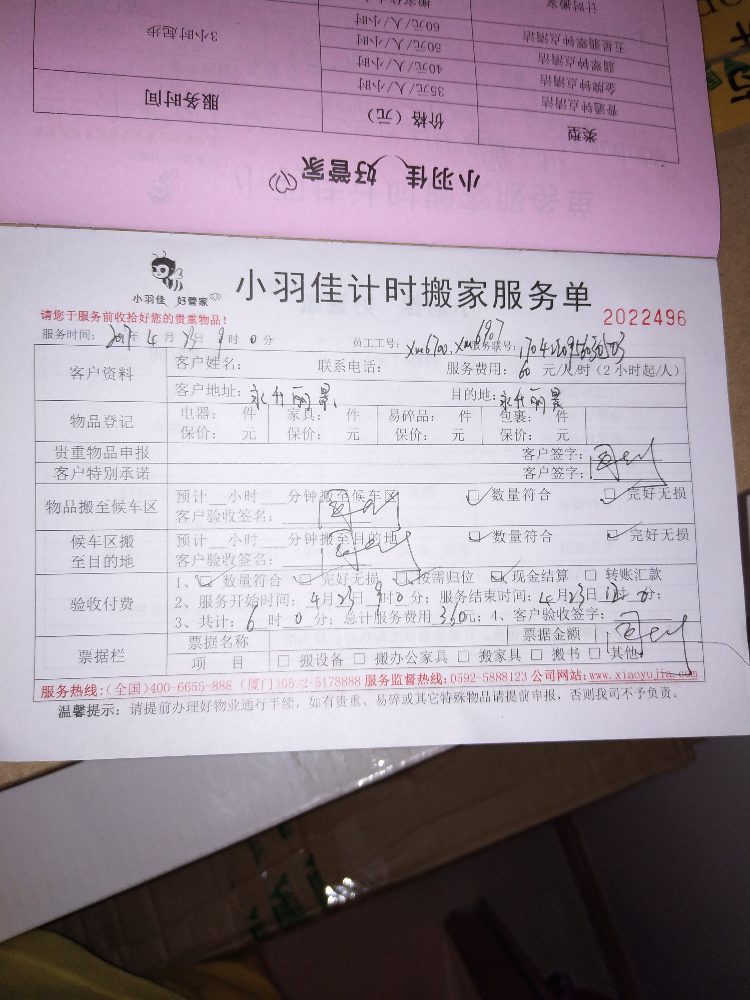 计时搬家
五星翡翠钟点清洁 60元/人/小时
翡翠钟点清洁 50元/人/小时 3小时起步
金牌钟点清洁 40元/人/小时
普通钟点清洁 35元/人/小时
类型 价格（元） 服务时间
小羽佳 好管家
小羽佳 好管家
小羽佳计时搬家服务单
2022496
请您于服务前收拾好您的贵重物品！
服务时间：2017年4月23日9时0分 员工工号： 服务联号：
客户资料 客户姓名： 联系电话： 服务费用：60元/人/时（2小时起/人）
客户地址：永升丽景 目的地：永升丽景
物品登记 电器： 件 家具： 件 易碎品： 件 包裹： 件
保价： 元 保价： 元 保价： 元 保价： 元
贵重物品申报 客户签字：
客户特别承诺 客户签字：
物品搬至候车区 预计__小时__分钟搬至候车区 数量符合 完好无损
客户验收签名：
候车区搬至目的地 预计__小时__分钟搬至目的地 数量符合 完好无损
客户验收签名：
验收付费 1、数量符合 完好无损 按需归位 现金结算 转账汇款
2、服务开始时间：4月23日9时0分；服务结束时间：4月23日 时0分；
3、共计：6时0分；总计服务费用360元；4、客户验收签字：
票据栏 票据名称 票据金额
项 目 搬设备 搬办公家具 搬家具 搬书 其他
服务热线：（全国）400-6655-888（厦门）0592-5178888 服务监督热线：0592-5888123 公司网站：www.xiaoyujia.com
温馨提示：请提前办理好物业通行手续，如有贵重、易碎或其它特殊物品请提前申报，否则我司不予负责。